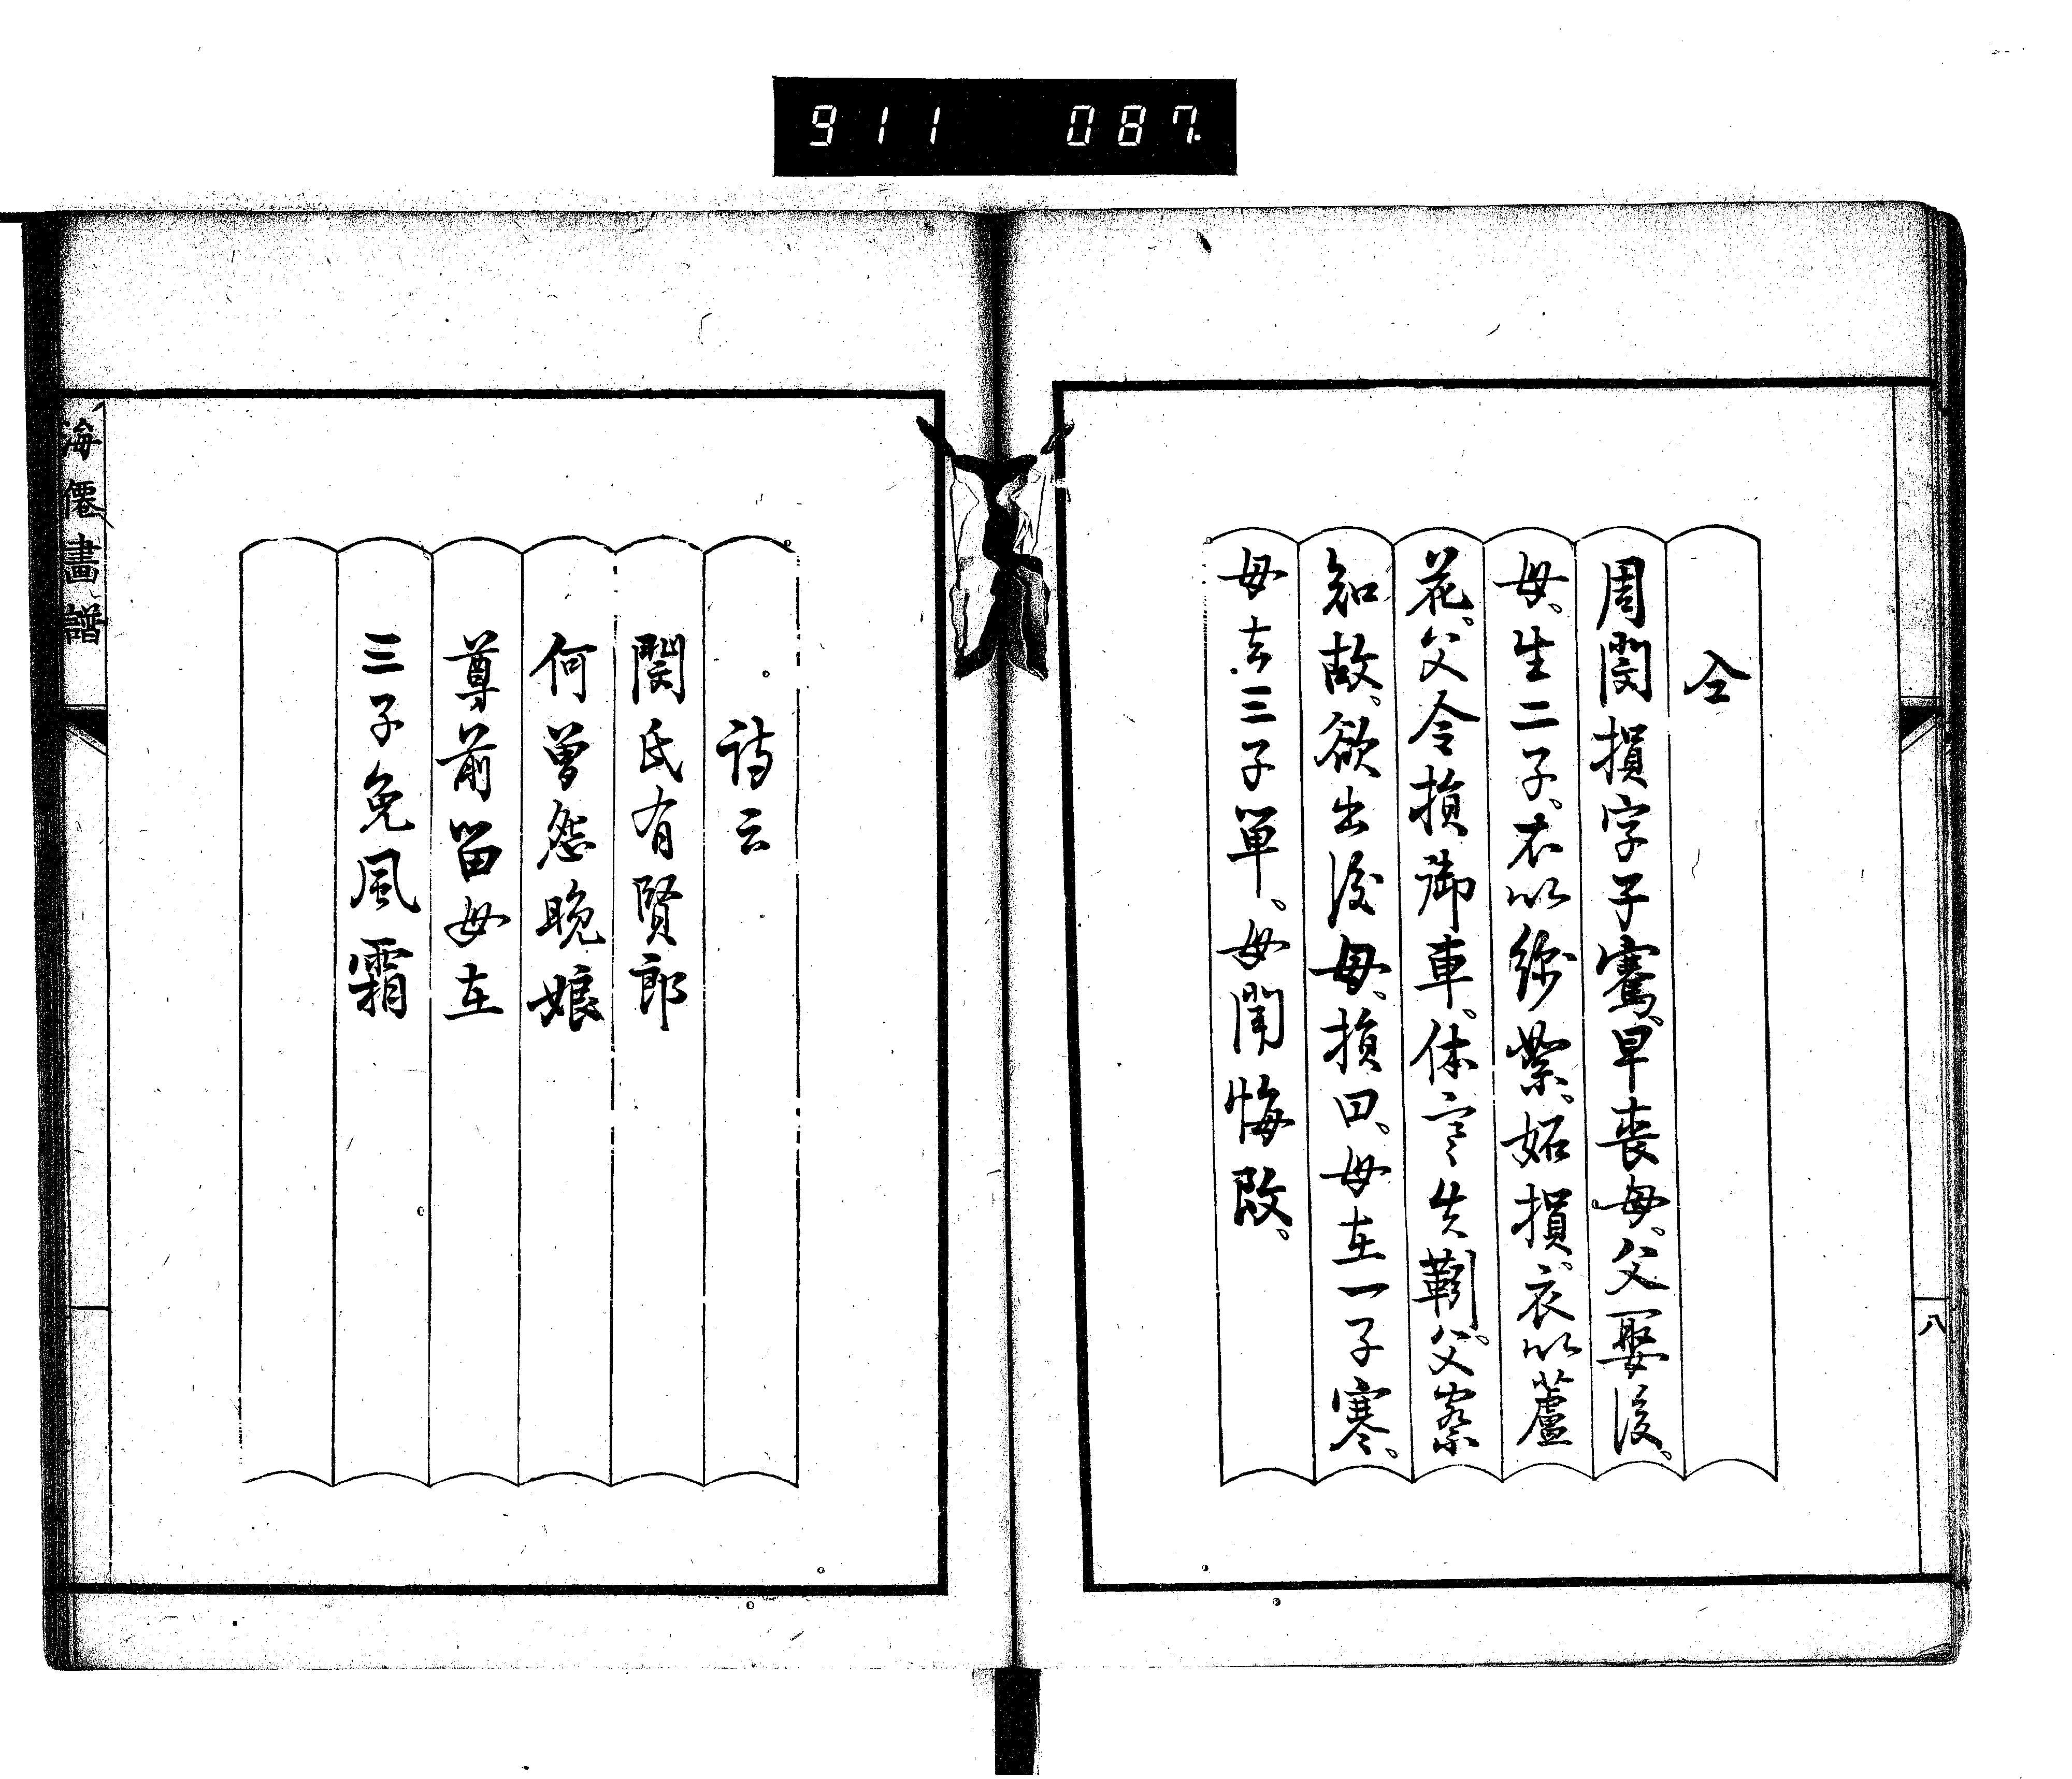 911 087.
八
仝
周閔損字子騫。早喪母。父娶後。
母、生二子。衣以綿絮。妬損。衣以蘆
花。父令損御車。体寒失靷。父察
知故。欲出後母、損曰、母在一子寒、
母去三子單、母聞悔改、
詩云
閔氏有賢郎
何曽怨晩娘
尊前留母在
三子免風霜
海僊畫譜